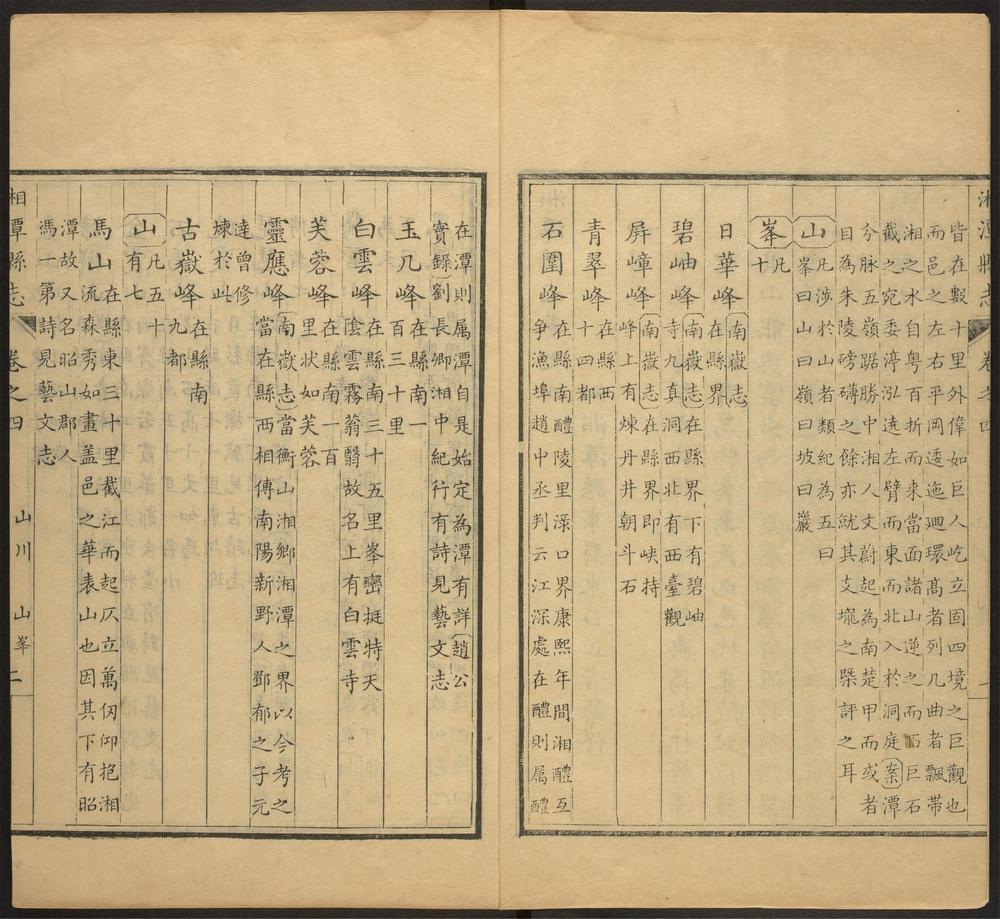 湘潭縣志 卷之四 一
皆在數十里外偉如巨人屹立固四境之巨觀也
而邑之左右平岡逶迤迴環髙者列几曲者飄帶
湘之水自粤百折而来當面諸山逆之而石巨石
截之宛委渟泓遶左臂而東而北入於洞庭案潭
分脉五嶺踞勝中湘人文蔚起為南楚甲而或者
目為朱陵磅礴之餘亦就其支壠之槩評之耳
山 凡涉於山者類紀為五曰
峯曰山曰嶺曰坡曰巖
峯 凡
十
日華峰 南嶽志
在縣界
碧岫峰 南嶽志在縣界下有碧岫
寺九真洞西北有西臺觀
屏嶂峰 南嶽志在縣界即峽持
峰上有煉丹井朝斗石
青翠峰 在縣西
十四都
石圍峰 在縣南醴陵里渌口界康熙年間湘醴互
爭漁埠趙中丞判云江深處在醴則属醴
在潭則属潭自是始定為潭有詳趙公
實録劉長卿湘中紀行有詩見藝文志
玉几峰 在縣南一
百三十里
白雲峰 在縣南三十五里峯巒挺特天
陰雲霧蓊翳故名上有白雲寺
芙蓉峰 在縣南一百
里状如芙蓉
靈應峰 南嶽志當衡山湘鄉湘潭之界以今考之
當在縣西相傳南陽新野人鄧郁之子元
達曾修
煉於此
古嶽峰 在縣南
九都
山 凡五十
有七
馬山 在縣東三十里截江而起仄立萬仞仰抱湘
流森秀如畫盖邑之華表山也因其下有昭
潭故又名昭山郡人
馮一第詩見藝文志
湘潭縣志 卷之四 山川 山峯 二